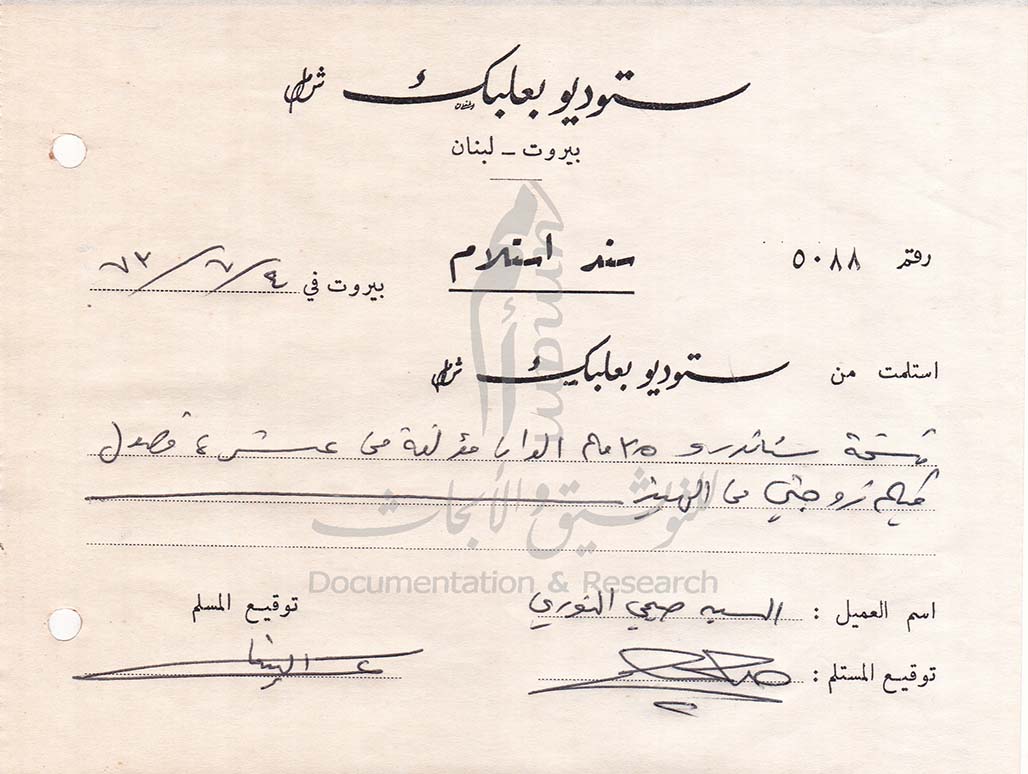 ستوديو بعلبك شمل
بيروت ـ لبنان
رقم ٥٠٨٨
سند استلام
بيروت في ٤/٧/٧٣
استلمت من ستوديو بعلبك شمل
نسخة ستاندرد ٣٥ ملم الوان مؤلفة من عشرة فصول
فيلم زوجتي من الهيبز
اسم العميل : السيد صبحي النوري
توقيع المسلم
توقيع المستلم :
أمم
للتوثيق والأبحاث
umam
Documentation & Research